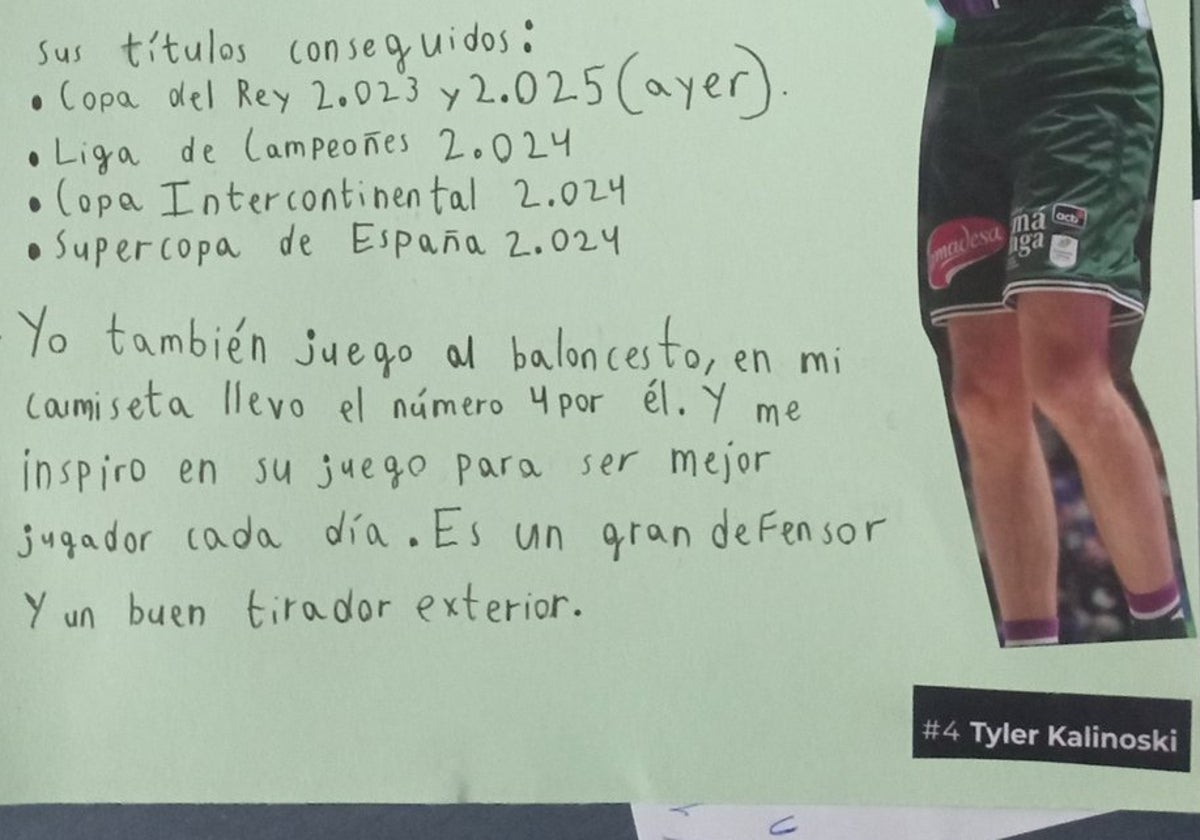 sus títulos conseguidos:
• Copa del Rey 2.023 y 2.025 (ayer).
• Liga de Campeoñes 2.024
• Copa Intercontinental 2.024
• Supercopa de España 2.024
Yo también juego al baloncesto, en mi
camiseta llevo el número 4 por él. Y me
inspiro en su juego para ser mejor
jugador cada día. Es un gran defensor
Y un buen tirador exterior.
má
acb
madesa
aga
#4 Tyler Kalinoski